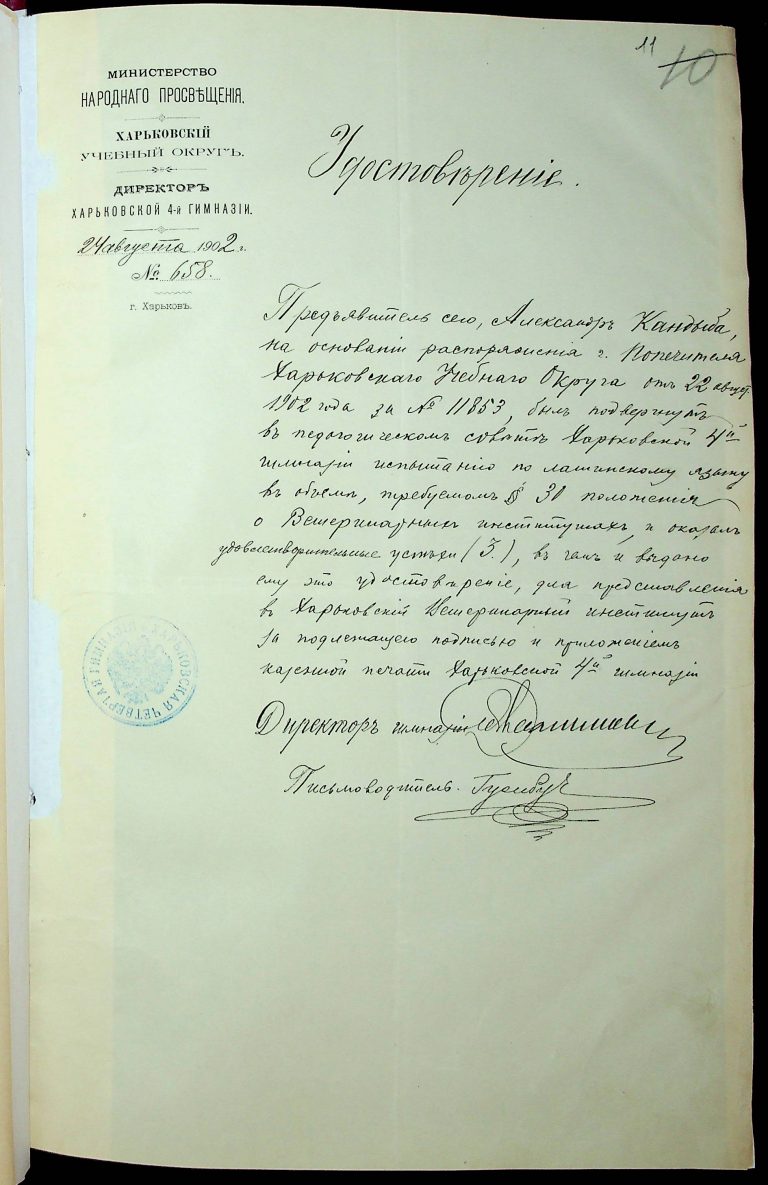 11
10
МИНИСТЕРСТВО
НАРОДНАГО ПРОСВѢЩЕНІЯ.
ХАРЬКОВСКІЙ
УЧЕБНЫЙ ОКРУГЪ.
ДИРЕКТОРЪ
ХАРЬКОВСКОЙ 4-й ГИМНАЗІИ.
24 августа 1902 г.
№ 658.
г. Харьковъ.
Удостовѣреніе.
Предъявитель сего, Александръ Кандыба,
на основаніи распоряженія г. Попечителя
Харьковскаго Учебнаго Округа отъ 22 август.
1902 года за № 11853, былъ подвергнутъ
въ педагогическомъ совѣтѣ Харьковской 4й
гимназіи испытанію по латинскому языку
въ объемѣ, требуемомъ § 30 положенія
о Ветеринарныхъ институтахъ, и оказалъ
удовлетворительные успѣхи (3.), въ чемъ и выдано
ему это удостовѣреніе, для представленія
въ Харьковскій Ветеринарный институтъ
за подлежащею подписью и приложеніемъ
казенной печати Харьковской 4й гимназіи
Директоръ гимназіи
Письмоводитель
ХАРЬКОВСКАЯ ЧЕТВЕРТАЯ ГИМНАЗІЯ